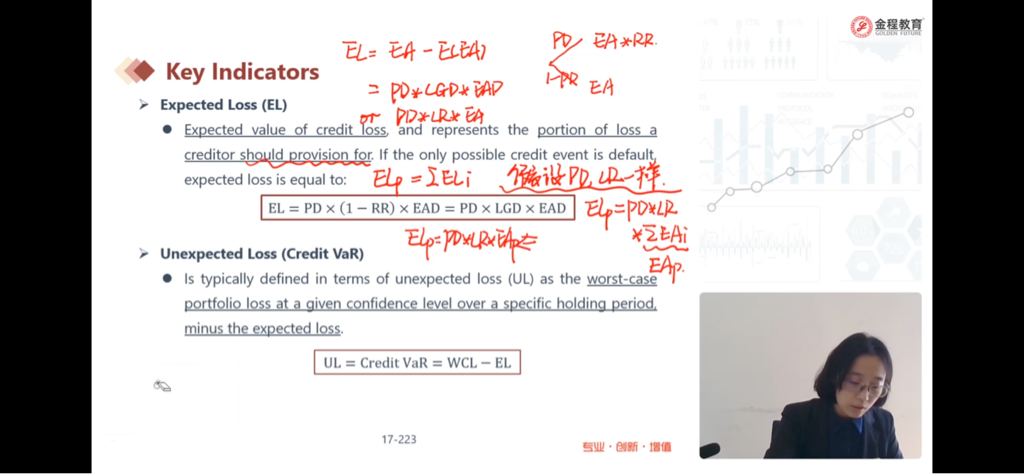 金程教育
GOLDEN FUTURE
EL = EA − E(EA)
PD EA*RR
1-PR EA
Key Indicators
= PD*LGD*EAD
or PD*LR*EA
Expected Loss (EL)
Expected value of credit loss, and represents the portion of loss a
creditor should provision for. If the only possible credit event is default,
expected loss is equal to:
ELp = ΣELi 假设PD, LR一样.
EL = PD × (1 − RR) × EAD = PD × LGD × EAD
ELp=PD*LR
*ΣEAi
EAp.
ELp=PD*LR*EAp
Unexpected Loss (Credit VaR)
Is typically defined in terms of unexpected loss (UL) as the worst-case
portfolio loss at a given confidence level over a specific holding period,
minus the expected loss.
UL = Credit VaR = WCL − EL
17-223
专业·创新·增值